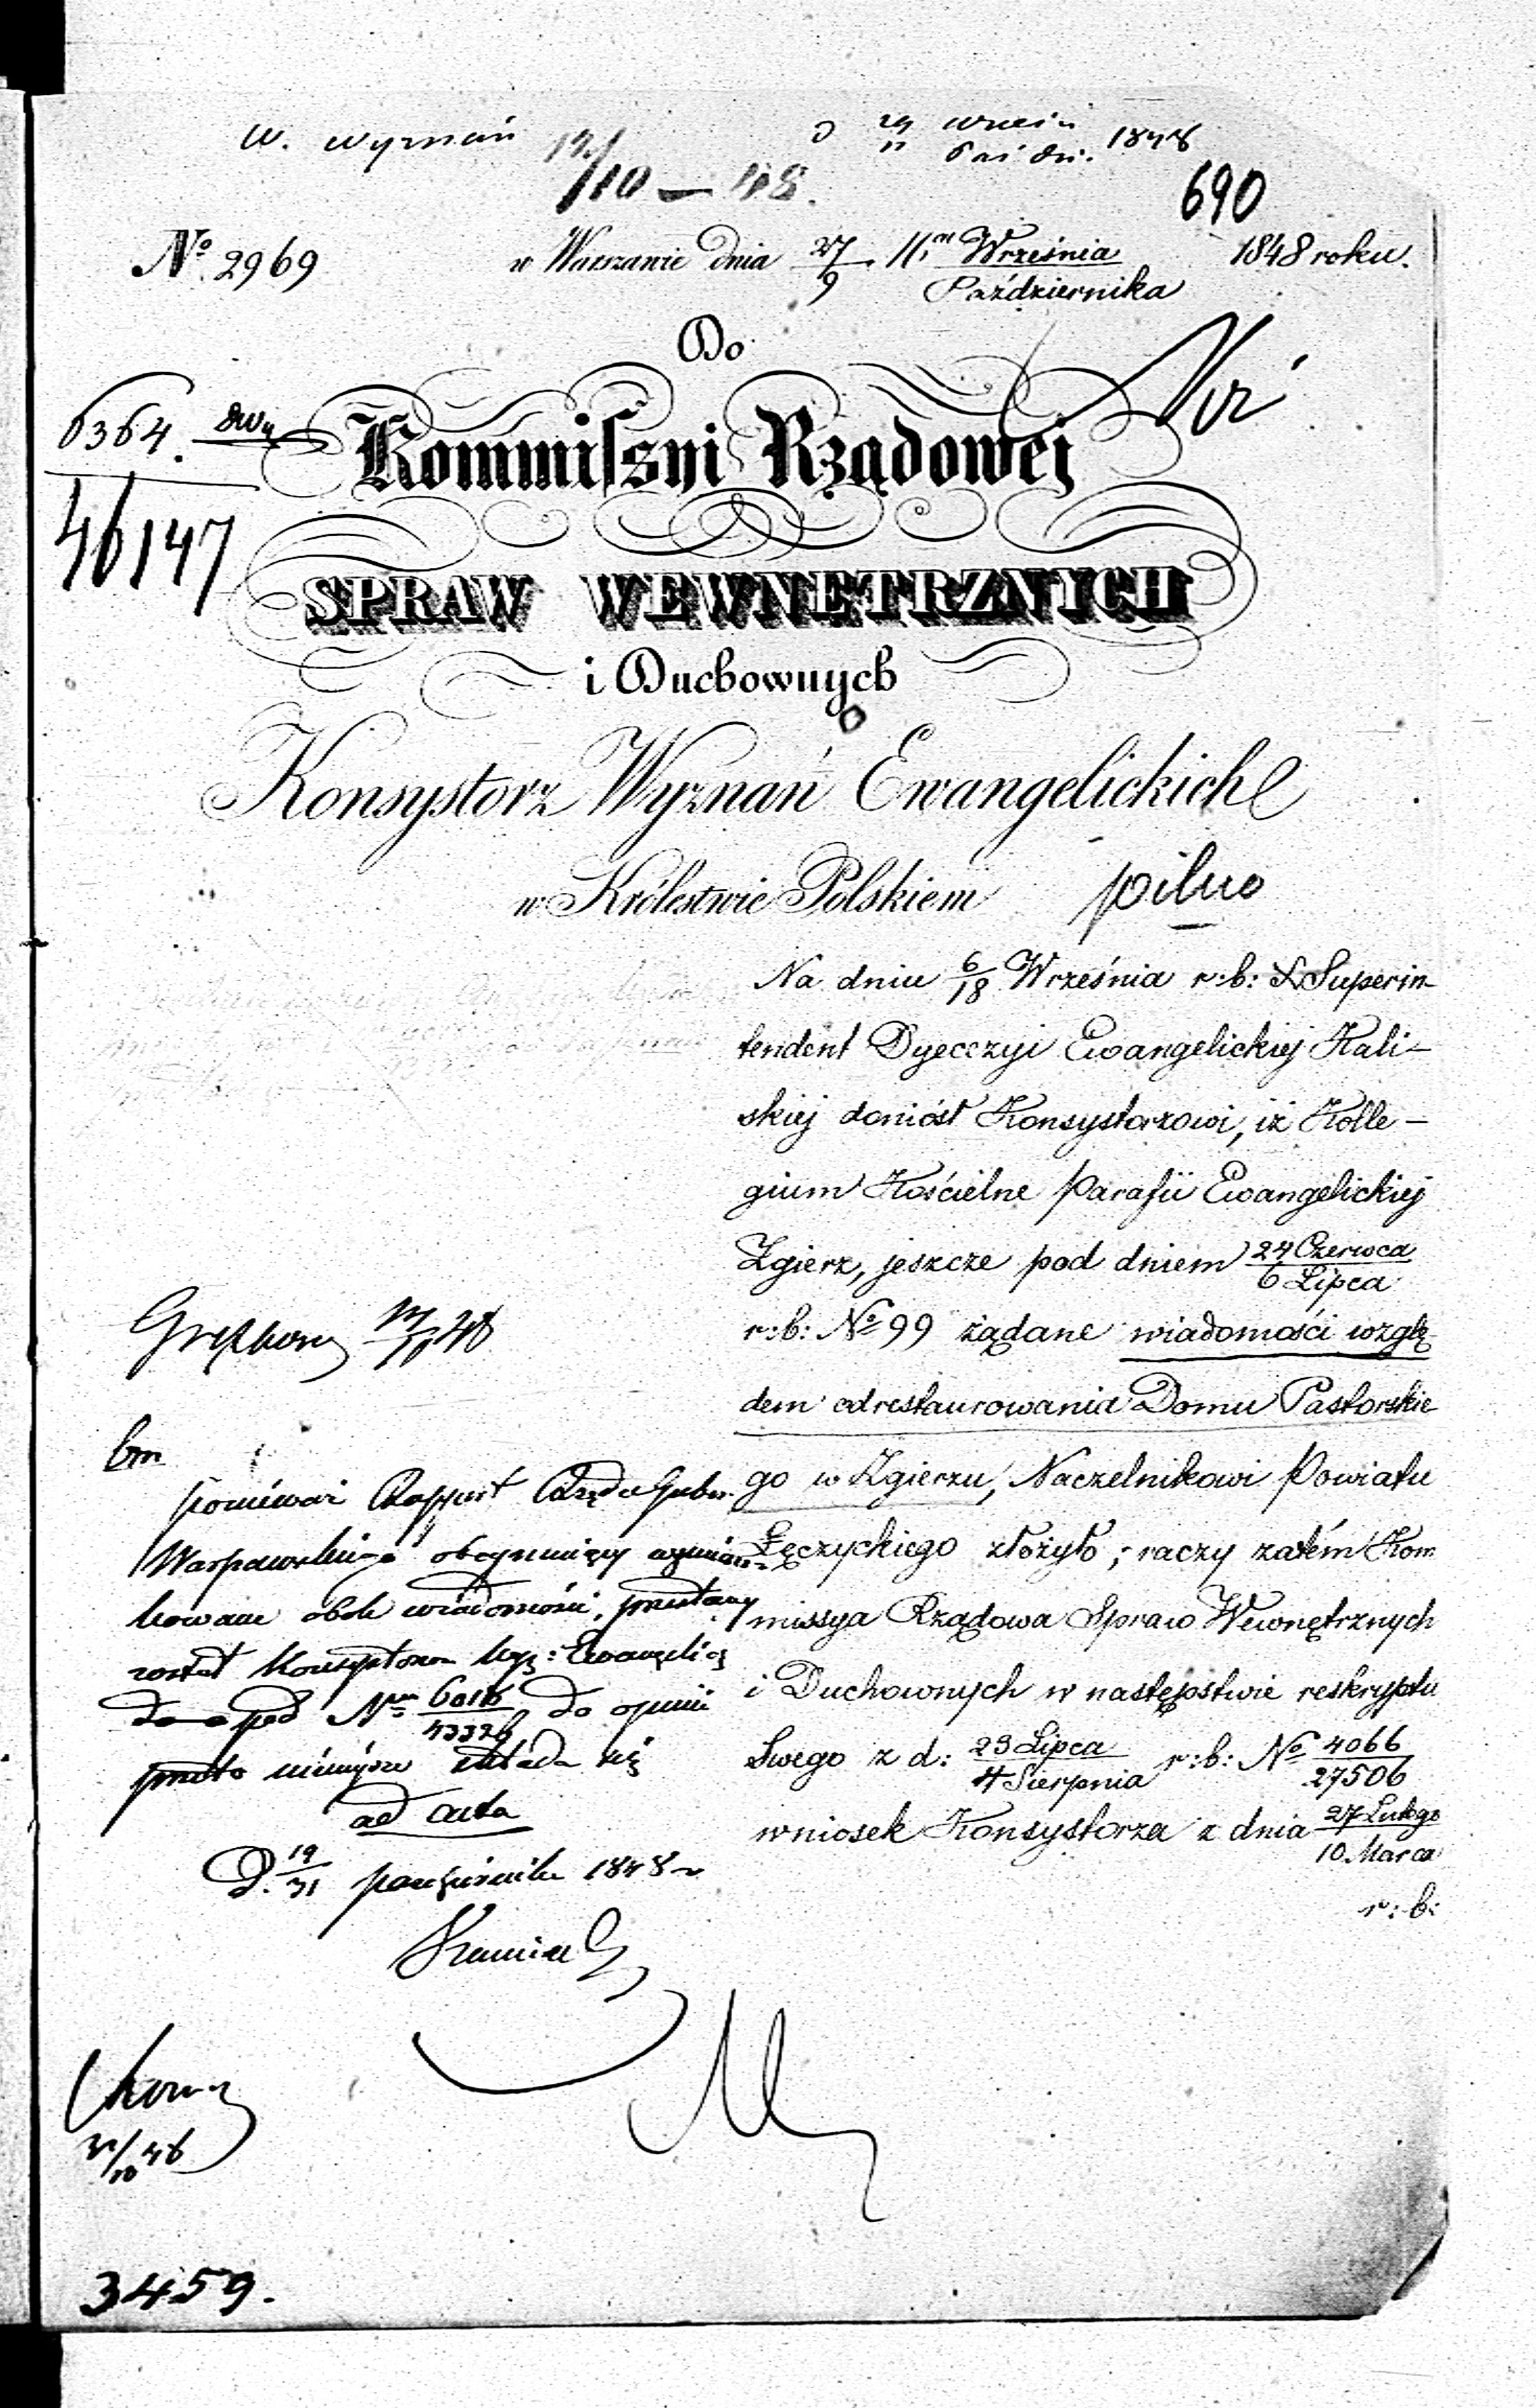 W. Wyznań 12/10 – 48.
690
No. 2969 w Warszawie dnia 27/9 Września/Października 1848 roku.
Do
Kommissyi Rządowej
6364.
46147
SPRAW WEWNĘTRZNYCH
i Duchownych
Konsystorz Wyznań Ewangelickich
w Królestwie Polskiem
pilno
Na dniu 6/18 Września r: b: Superin-
tendent Dyecezyi Ewangelickiej Kali-
skiej doniósł Konsystorzowi, iż Kolle-
gium Kościelne Parafii Ewangelickiej
Zgierz, jeszcze pod dniem 24 Czerwca/6 Lipca
r: b: No 99 żądane wiadomości wzglę-
dem odrestaurowania Domu Pastorskie
go w Zgierzu, Naczelnikowi Powiatu
Łęczyckiego złożyło; raczy zatém Kom
missya Rządowa Spraw Wewnętrznych
i Duchownych w następstwie reskryptu
Swego z d: 23 Lipca/4 Sierpnia r: b: No 4066/27506
wniosek Konsystorza z dnia 27 Lutego/10 Marca
r: b:
ponieważ Rapport Rządu Guber.
Warszawskiego obejmujący wymian-
kowane obok wiadomości, przesłany
został Konsystorzowi Wyz: Ewangelic
pod Nrm 6016/43326 do opinii
przeto niniejsze składa się
ad acta
D. 19/31 października 1848 r
3459.